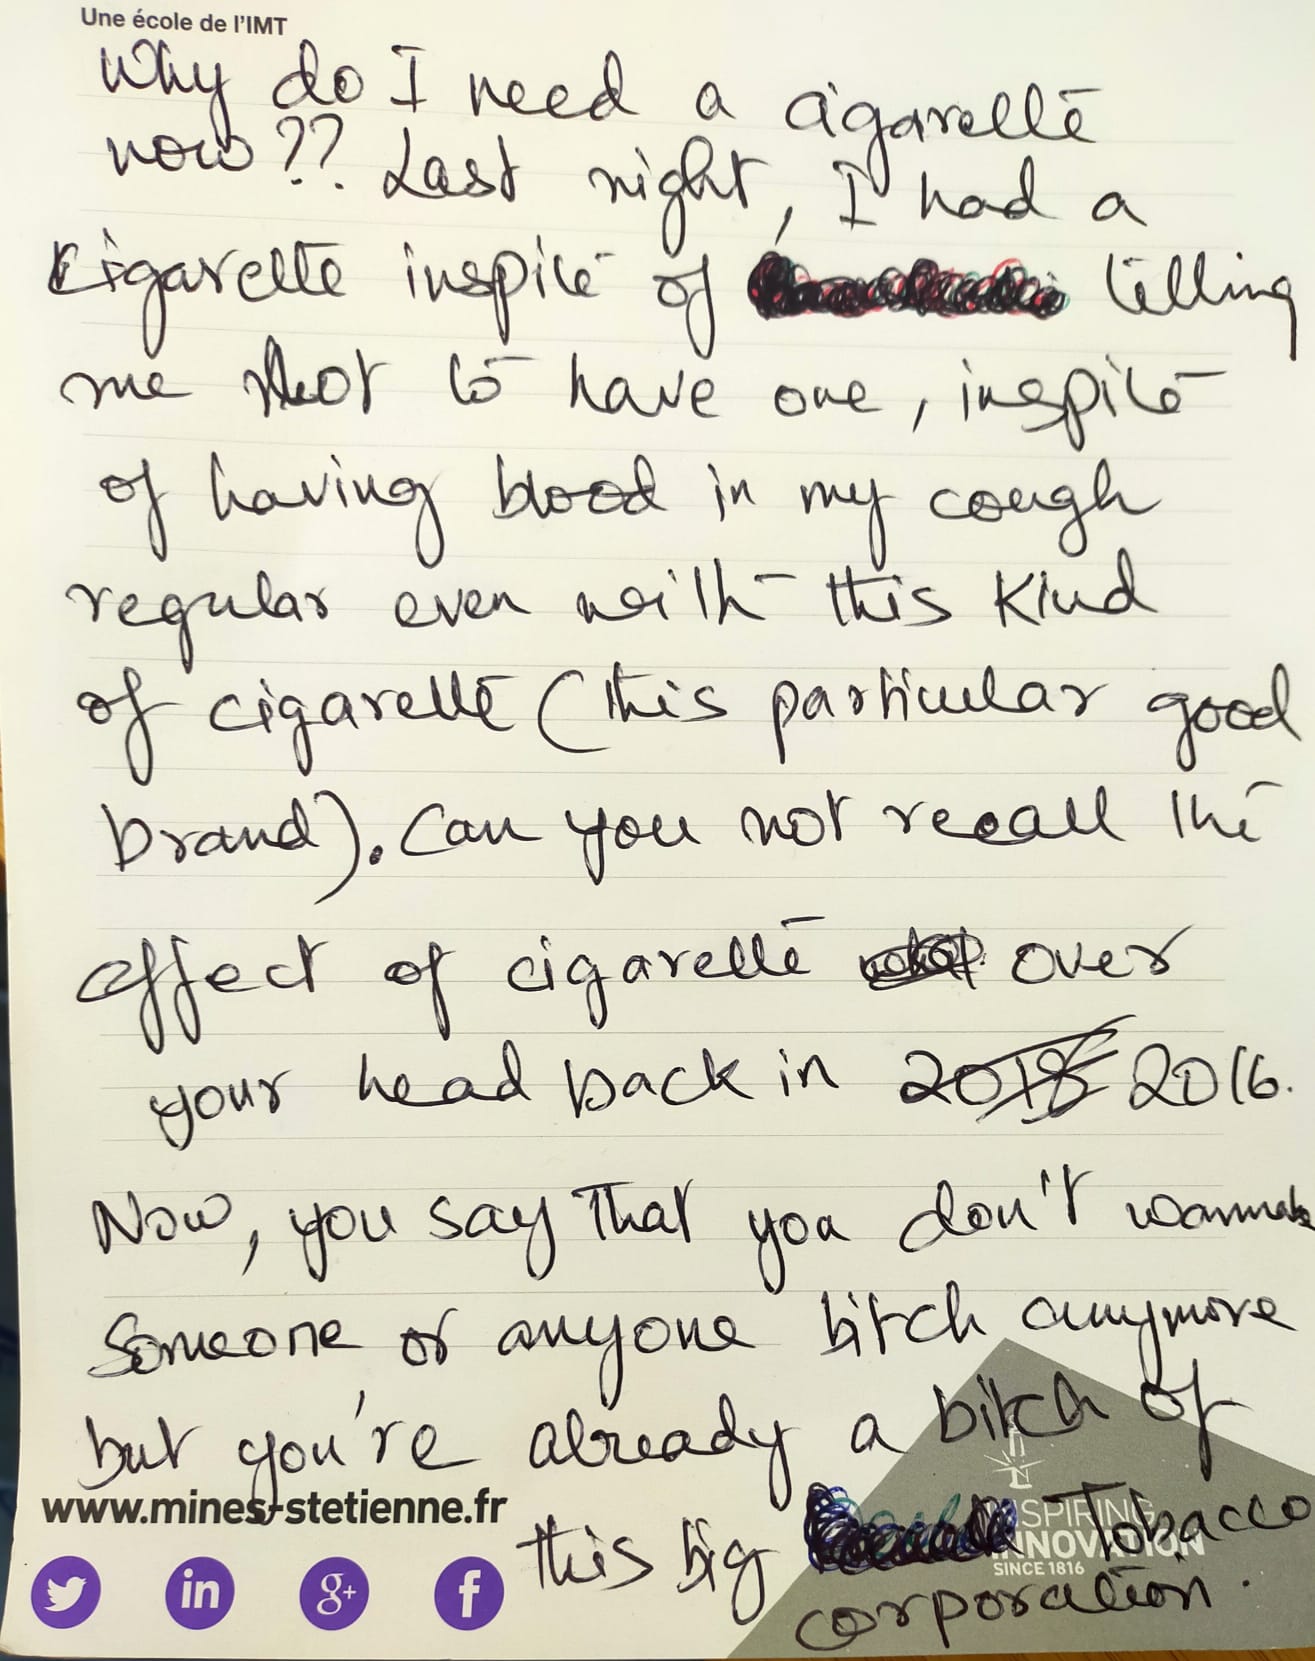 Une école de l'IMT
Why do I need a cigarette
now?? Last night, I had a
cigarette inspite of telling
me not to have one, inspite
of having blood in my cough
regular even with this kind
of cigarette (this particular good
brand). Can you not recall the
effect of cigarette over
your head back in 2018 2016.
Now, you say that you don't wanna be
someone or anyone bitch anymore
but you're already a bitch of
www.mines-stetienne.fr
this big Tobacco
corporation.
INSPIRING
INNOVATION
SINCE 1816
in g+ f